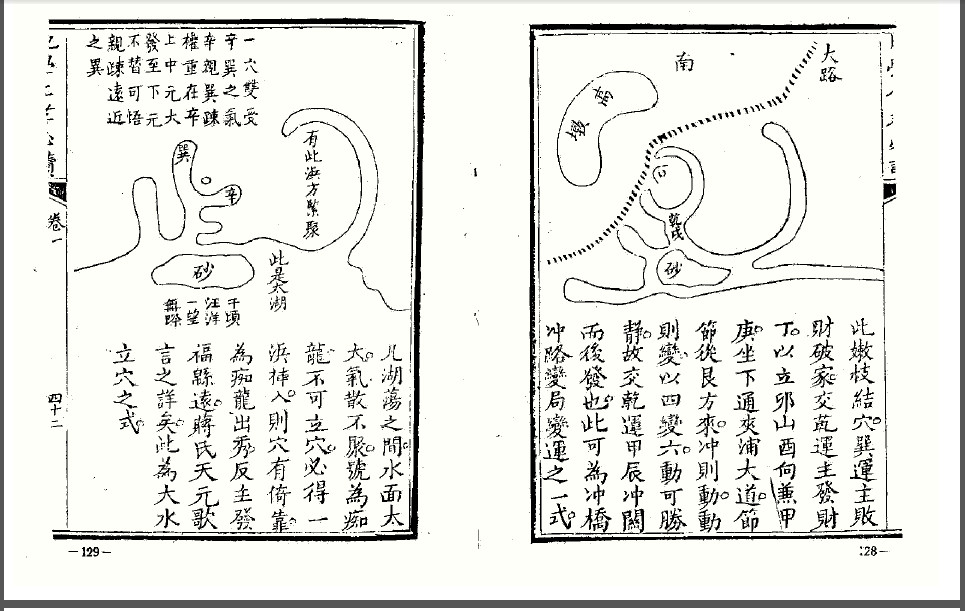 大路
南
高墩
乾戌
砂
此嫩枝結穴巽運主敗
財破家交乾運主發財
丁以立邜山酉向兼甲
庚坐下通夾浦大道節
節後艮方來冲則動動
則變以四變六動可勝
靜故交乾運甲辰冲開
而後發也此可為冲橋
冲路變局變運之一式
128—
一穴雙受
辛巽之氣
辛親巽疎
權重在辛
上中元大
發至下元
不替可悟
親疎遠近
之異
有此浜方緊聚
巽
辛
砂
此是太湖
千頃
汪洋
一望
無際
凡湖蕩之間水面太
大氣散不聚號為痴
龍不可立穴必得一
浜揷入則穴有倚靠
為痴龍出秀反主發
福縣遠蔣氏天元歌
言之詳矣此為大水
立穴之式
卷一
四十二
—129—